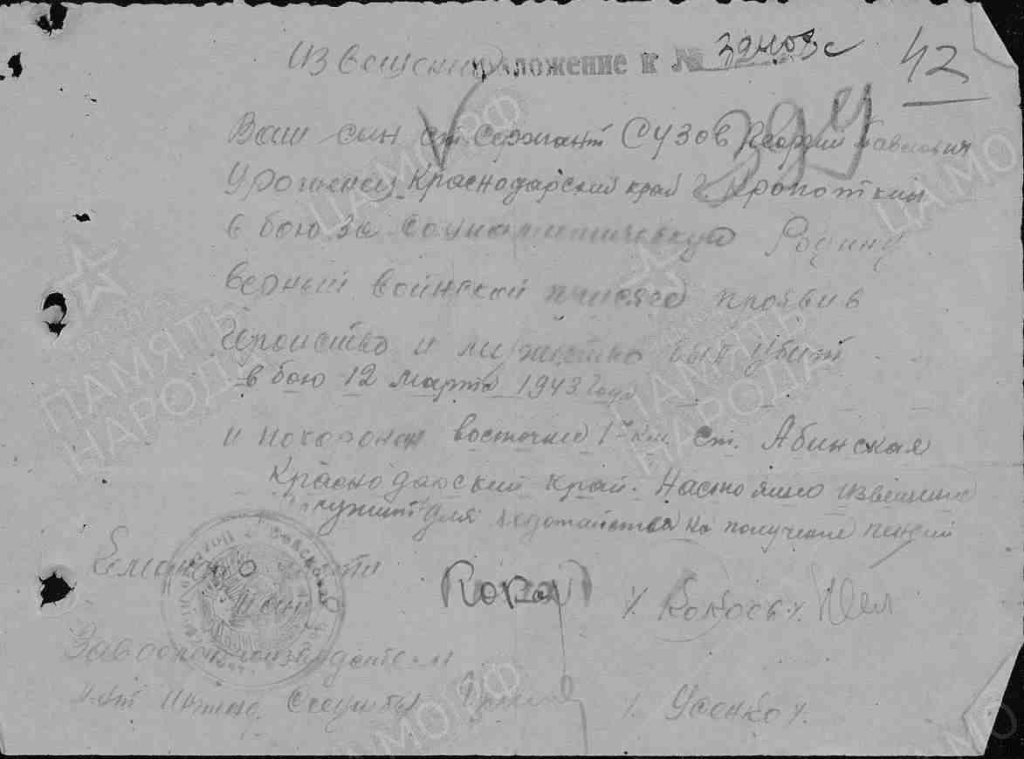 Извещение
Приложение к № 32403с
42
Ваш сын ст сержант Сузов Георгий Павлович
Уроженец Краснодарский край г Кропоткин
В бою за социалистическую Родину
верный воинской присяге проявив
геройство и мужество был убит
в бою 12 марта 1943 года
и похоронен восточнее 1 км ст. Абинская
Краснодарский край. Настоящее извещение
служит для ходатайства на получение пенсии
Командир части
Зав делопроизводством
Усенко
ПАМЯТЬ НАРОДА
ЦАМО РФ